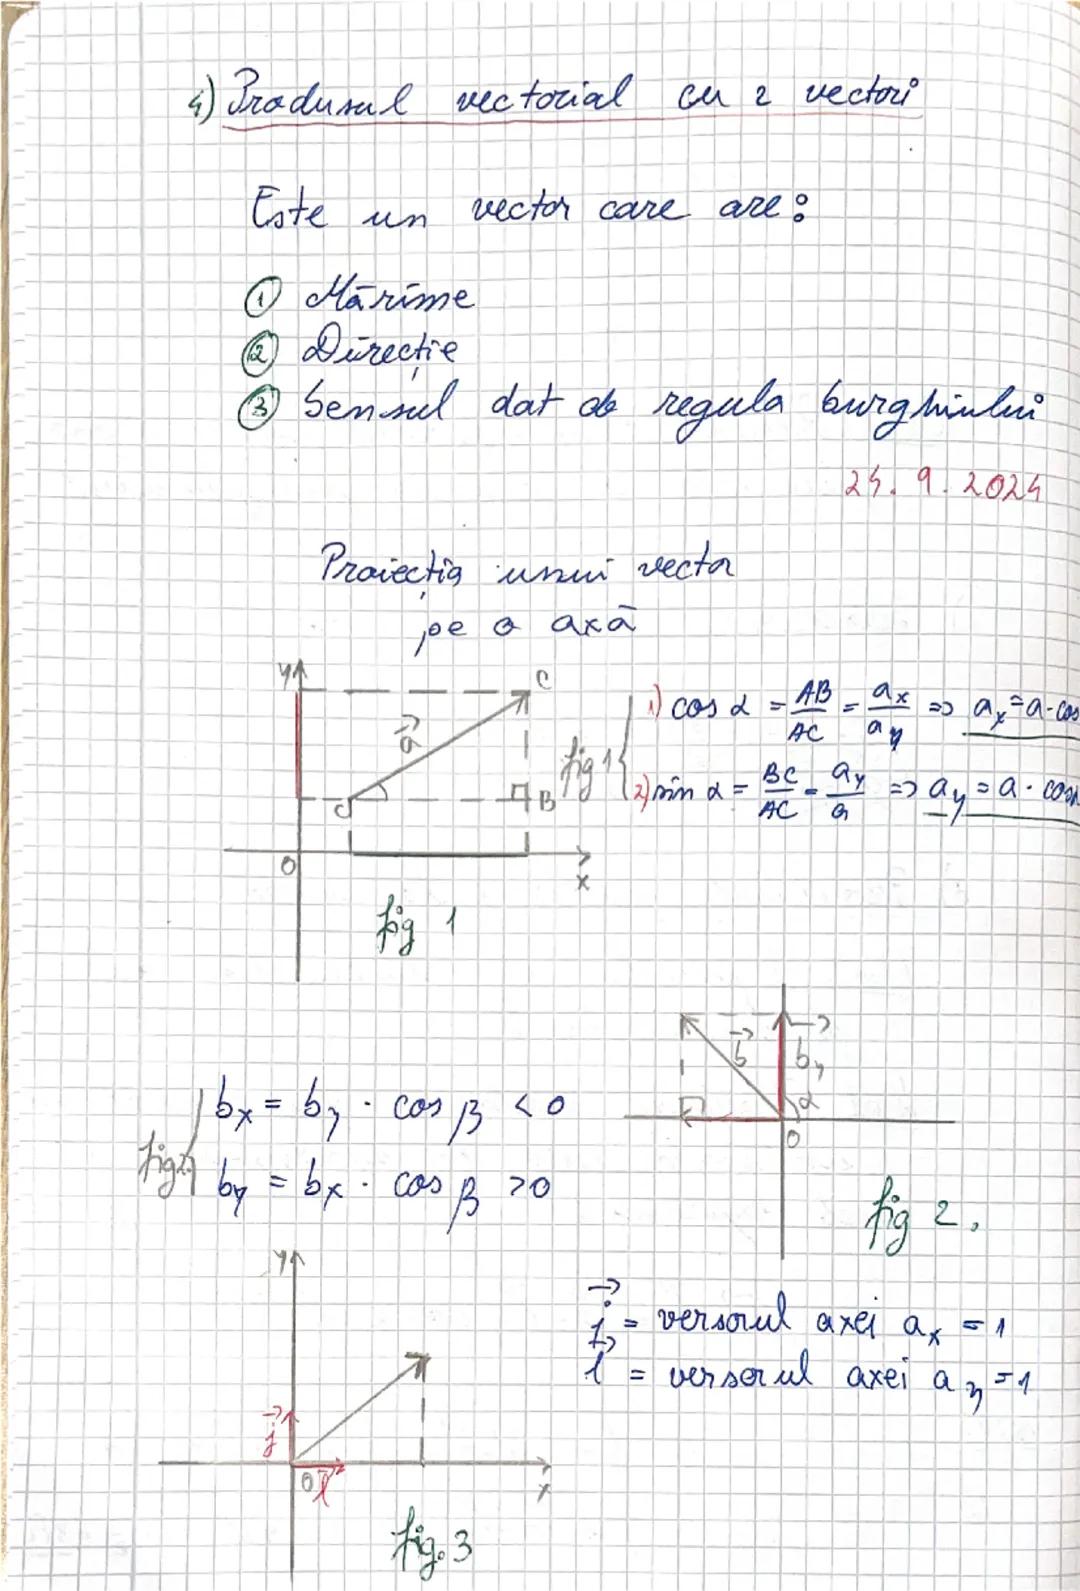 4) Produsul vectorial cu 2 vectori
Este un vector care are:
① Mărime
② Direcție
③ Sensul dat de regula burghiului
24. 9. 2024
Proiecția unui vector
pe o axă
y
C
a⃗
C
B
O
x
fig 1
fig 1 {
1) cos α = AB/AC = ax/ay => ax = a · cos
2) sin α = BC/AC = ay/a => ay = a · cos
b⃗
b⃗y
α
O
fig 2.
fig 2 {
bx = by · cos β < 0
by = bx · cos β > 0
j⃗ = versorul axei ax = 1
l⃗ = versorul axei ay = 1
y
j⃗
O
l⃗
x
fig. 3